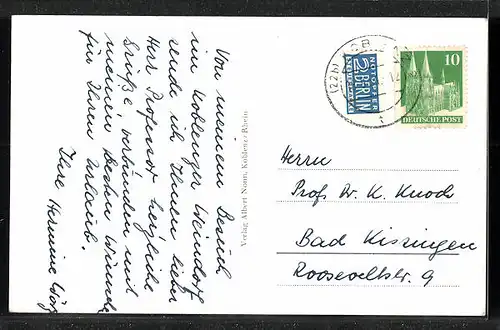 Von meinem Besuch
im Koblenzer Weindorf
sende ich Ihnen lieber
Herr Professor herzliche
Grüße, verbunden mit
meinen besten Wünschen
für Ihren Urlaub.
Ihre Hermine
Verlag Albert Nonn, Koblenz/Rhein
(22b)
NOTOPFER
2 BERLIN
STEUERMARKE
10
DEUTSCHE POST
Herrn
Prof. Dr. K. Knoch
Bad Kissingen
Rooseveltstr. 9